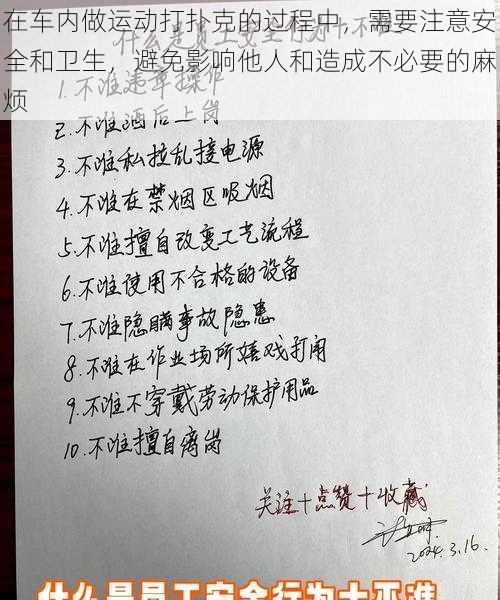 在车内做运动打扑克的过程中，需要注意安
全和卫生，避免影响他人和造成不必要的麻
烦
什么是员工安全行为十不准
1.不准违章操作
2.不准酒后上岗
3.不准私拉乱接电源
4.不准在禁烟区吸烟
5.不准擅自改变工艺流程
6.不准使用不合格的设备
7.不准隐瞒事故隐患
8.不准在作业场所嬉戏打闹
9.不准不穿戴劳动保护用品
10.不准擅自离岗
关注+点赞+收藏
2024.3.16.
什么是员工安全行为十不准